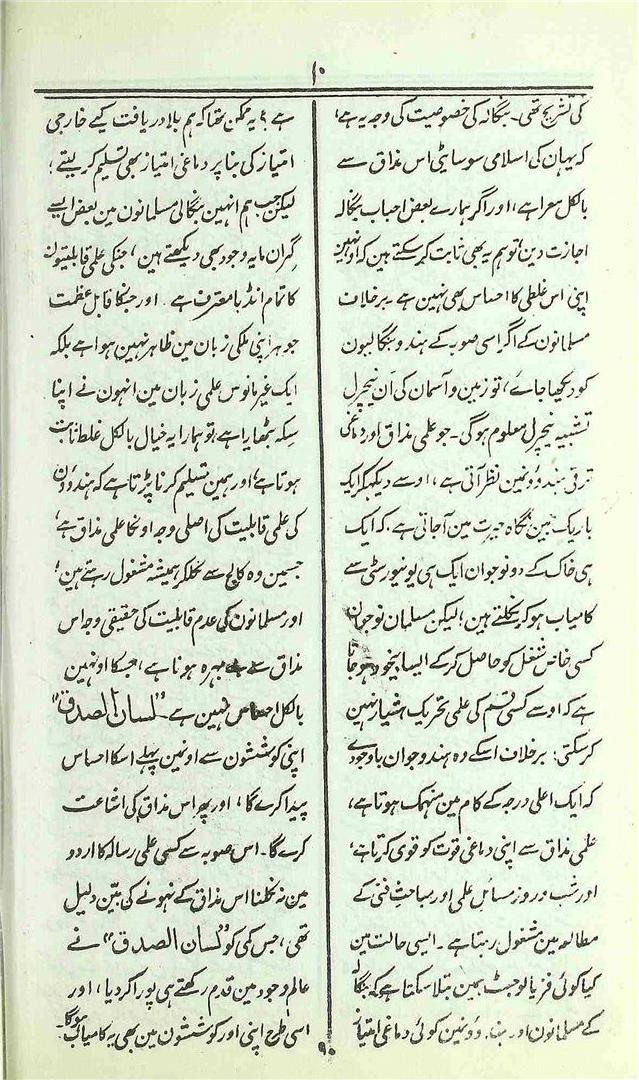 ۱۰
کی تشریح تھی ۔ بنگالہ کی خصوصیت کی وجہ یہ ہے،
کہ یہان کی اسلامی سوسایٹی اس مذاق سے
بالکل معرا ہے، اور اگر ہمارے بعض احباب بنگالہ
اجازت دین تو ہم یہ بھی ثابت کر سکتے ہین کہ اونہین
اپنی اس غلطی کا احساس بھی نہین ہے ۔ برخلاف
مسلمانون کے اگر اسی صوبہ کے ہندو بنگالیون
کو دیکھا جائے، تو زمین و آسمان کی اَن نیچرل
تشبیہ نیچرل معلوم ہوگی ۔ جو علمی مذاق اور دماغی
ترقی ہندوؤنین نظر آتی ہے، اوسے دیکھکر ایک
باریک بین نگاہ حیرت مین آجاتی ہے، کہ ایک
ہی خاک کے دو نوجوان ایک ہی یونیورسٹی سے
کامیاب ہو کر نکلتے ہین؛ لیکن مسلمان نوجوان
کسی خاص شغل کو حاصل کر کے ایسا بیخود ہو جاتا
ہے کہ اوسے کسی قسم کی علمی تحریک ہشیار نہین
کر سکتی؛ برخلاف اسکے وہ ہندو جوان باوجودے
کہ ایک اعلی درجہ کے کام مین منہمک ہوتا ہے،
علمی مذاق سے اپنی دماغی قوت کو قوی کرتا ہے
اور شب و روز مسائل علمی اور مباحث فنی کے
مطالعہ مین مشغول رہتا ہے ۔ ایسی حالت مین
کیا کوئی فزیالوجسٹ ہمین بتلا سکتا ہے کہ بنگالہ
کے مسلمانون اور ہندوؤنین کوئی دماغی امتیاز
ہے ؟ یہ ممکن تھا کہ ہم بلا دریافت کیے خارجی
امتیاز کی بنا پر دماغی امتیاز بھی تسلیم کر لیتے؛
لیکن جب ہم انہین بنگالی مسلمانون مین بعض ایسے
گران مایہ وجود بھی دیکھتے ہین، جنکی علمی قابلیتون
کا تمام انڈیا معترف ہے، اور جنکا قابل عظمت
جوہر اپنی ملکی زبان مین ظاہر نہین ہوا ہے بلکہ
ایک غیر مانوس علمی زبان مین انہون نے اپنا
سکہ بٹھایا ہے، تو ہمارا یہ خیال بالکل غلط ثابت
ہوتا ہے؛ اور ہمین تسلیم کرنا پڑتا ہے کہ ہندوؤن
کی علمی قابلیت کی اصلی وجہ اونکا علمی مذاق ہے،
جسمین وہ کالج سے نکلکر ہمیشہ مشغول رہتے ہین؛
اور مسلمانون کی عدم قابلیت کی حقیقی وجہ اس
مذاق سے بے بہرہ ہونا ہے، جسکا اونہین
بالکل احساس نہین ہے ۔ "لسان الصدق"
اپنی کوششون سے اونمین پہلے اسکا احساس
پیدا کرے گا، اور پھر اس مذاق کی اشاعت
کرے گا ۔ اس صوبہ سے کسی علمی رسالہ کا اردو
مین نہ نکلنا اس مذاق کے نہونے کی بیّن دلیل
تھی، جس کمی کو "لسان الصدق" نے
عالم وجود مین قدم رکھتے ہی پورا کر دیا، اور
اسی طرح اپنی اور کوششون مین بھی یہ کامیاب ہوگا ۔
۹۰